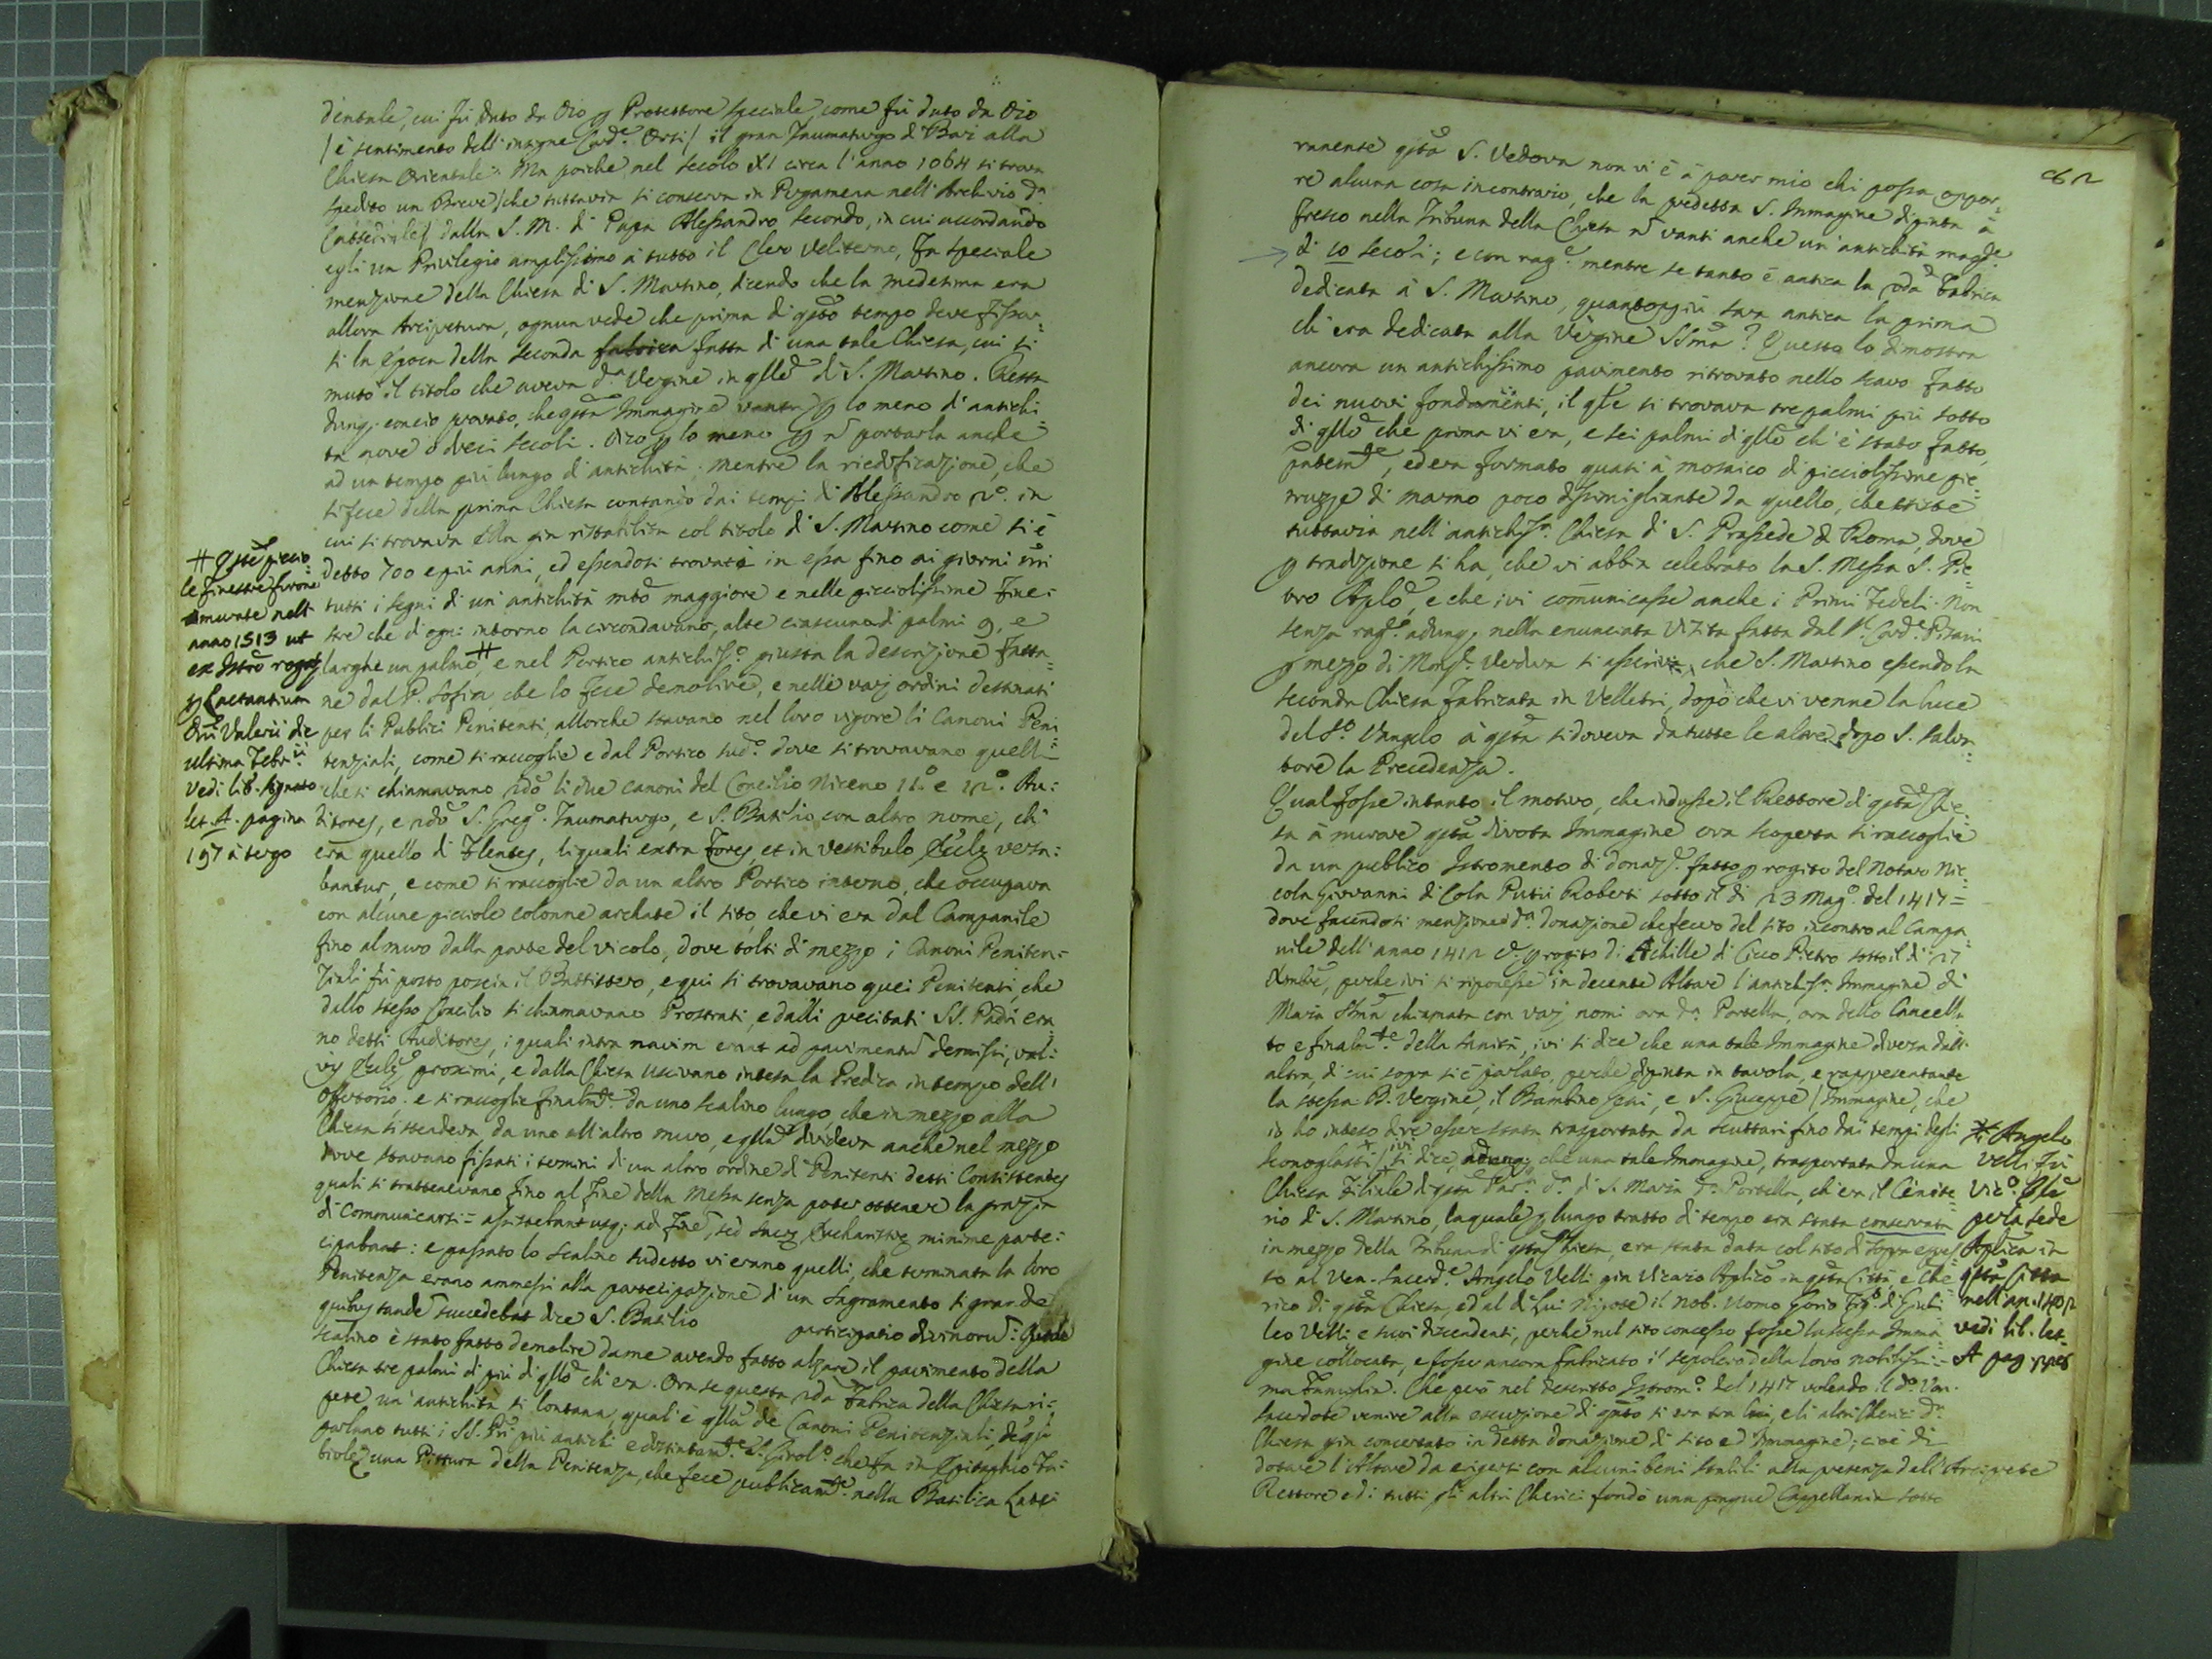 dentale, cui fù dato da Dio p Protettore speciale, come fù dato da Dio
/è sentimento dell'insigne Card.e Orsi/ il gran Taumaturgo di Bari alla
Chiesa Orientale: Ma poiche nel secolo XI circa l'anno 1064 si trova
spedito un Breve /che tuttavia si conserva in Pergamena nell'Archivio d.a
Cattedrale/ dalla S. M. di Papa Alessandro secondo, in cui accordando
egli un Privilegio amplissimo à tutto il Clero Veliterno, fa speciale
menzione della Chiesa di S. Martino, dicendo che la medesima era
allora Arcipretura, ognun vede che prima di qsto tempo deve fissar=
si la Epoca della seconda fabrica fatta di una tale Chiesa, cui si
mutò il titolo che aveva d.a Vergine in qllo di S. Martino. Resta
dunq. con ciò provato, che qsta Immagine vanta p lo meno d'antichi=
tà nove ò dieci secoli. Dico p lo meno p ñ portarla anche
ad un tempo più lungo d'antichità; mentre la riedificazione, che
si fece della prima Chiesa contando dai tempi di Alessandro 2.o in
cui si trovava ella gia ristabilita col titolo di S. Martino come si è
detto 700 e più anni, ed essendosi trovati in essa fino ai giorni ñri
tutti i segni di un'antichità mto maggiore e nelle picciolissime fine=
stre che d'ogni intorno la circondavano, alte ciascuna di palmi 9, e
larghe un palmo #, e nel Portico antichiss.o giusta la descrizione fatta=
ne dal P. Sofia, che lo fece demolire, e nelli varj ordini destinati
per li Publici Penitenti, allorche stavano nel loro vigore li Canoni Peni=
tenziali, come si raccoglie e dal Portico sud.o dove si trovavano quelli
che si chiamavano 2do li due canoni del Concilio Niceno 11.o e 12.o Au=
ditores, e 2do S. Greg.o Taumaturgo, e S. Basilio con altro nome, ch'
era quello di Flentes, li quali extra Fores, et in vestibulo Ecclę versa=
bantur, e come si raccoglie da un altro Portico interno, che occupava
con alcune picciole colonne archate il sito, che vi era dal Campanile
fino al muro dalla parte del vicolo, dove tolti di mezzo i Canoni Peniten=
ziali fù posto poscia il Battistero, e qui si trovavano quei Penitenti, che
dallo stesso Concilio si chiamavano Prostrati, e dalli precitati SS. Padri era=
no detti Auditores, i quali intra navim erant ad pavimentũ demissi, val=
vis Ecclę proximi, e dalla Chiesa uscivano intesa la Predica in tempo dell'
Offertorio: e si raccoglie finalmte da uno scalino lungo che in mezzo alla
Chiesa si stendeva da uno all'altro muro, e qlla divideva anche nel mezzo
dove stavano fissati i termini di un altro ordine di Penitenti detti Consistentes
quali si trattenevano fino al fine della Messa senza poter ottenere la grazia
di Communicarsi = assistebant usq. ad finẽ, sed sacrę Eucharistię minime parte=
cipabant: e passato lo scalino sudetto vi erano quelli, che terminata la loro
Penitenza erano ammessi alla partecipazione di un Sagramento si grande
quibus tandẽ succedebat dice S. Basilio participatio divinorũ: Quale
scalino è stato fatto demolire da me avendo fatto alzare il pavimento della
Chiesa tre palmi di più di qllo ch'era. Ora se questa 2da Fabrica della Chiesa ri=
pete un'antichità si lontana, qual'è qlla de Canoni Penitenziali, de qli
parlano tutti i SS. Pri più antichi e distintamte S. Girol.o che fa in Epitaphio Fa=
biolę una Pittura della Penitenza, che fece publicamte nella Basilica Late=
# Qste piccio=
le finestre furono
murate nell
anno 1513 ut
ex Istro rogat.
p Lactantium
de Valerii die
ultima Febr.ii
Vedi lib. signato
let. A. pagina
197 à tergo
82
ranense qsta S. Vedova non vi è à parer mio chi possa oppor=
re alcuna cosa incontrario, che la predetta S. Immagine dipinta à
fresco nella Tribuna della Chiesa ñ vanti anche un'antichità magre
di 10 secoli; e con rag.e mentre se tanto è antica la 2da Fabrica
dedicata à S. Martino, quantopiù sara antica la prima
ch'era dedicata alla Vergine SSma? Questo lo dimostra
ancora un antichissimo pavimento ritrovato nello scavo fatto
dei nuovi fondamenti, il qle si trovava tre palmi più sotto
di qllo che prima vi era, e sei palmi di qllo ch'è stato fatto
ed era formato quasi à mosaico di picciolissime pie=
truzze di marmo poco dissimigliante da quello, che esiste
tuttavia nell'antichiss.a Chiesa di S. Prassede di Roma, dove
p tradizione si ha, che vi abbia celebrato la S. Messa S. Pie=
tro Aplo, e che ivi comunicasse anche i Primi Fedeli. Non
senza rag.e adunq. nella enunciata Visita fatta dal S.r Card.e Pisani
p mezzo di Mons.r Verdura si asserisce, che S. Martino essendo la
seconda Chiesa fabricata in Velletri, dopò che vi venne la luce
del S.o Vangelo à qsta si doveva da tutte le altre dopo S. Salva=
tore la Precedenza.
Qual fosse intanto il motivo, che indusse il Rettore di qsta Chie=
sa à murare qsta divota Immagine ora scoperta si raccoglie
da un publico Istromento di donaz.e fatto p rogito del Notaro Nic=
cola Giovanni di Cola Putii Roberti sotto il dì 23 Mag.o del 1417=
dove facendosi menzione d.a donazione che fecero del sito incontro al Campa=
nile dell'anno 1412 p rogito di Achille di Cicco Pietro sotto il di 27
Xmbre, perche ivi si riponesse in decente Altare l'antichiss.a Immagine di
Maria SSma chiamata con varj nomi ora d.a Portella, ora dello Cancella=
to e finalmte della Sanità, ivi si dice che una tale Immagine diversa dall'
altra, di cui sopra si è parlato, perche dipinta in tavola, e rappresentante
la stessa B. Vergine, il Bambino Gesù, e S. Giuseppe /Immagine, che
io ho inteso dire essere stata trasportata da Scuttari fino dai tempi degli
Iconoglasti/ ivi si dice, adunq. che una tale Immagine, trasportata da una
Chiesa Filiale di qsta Par.a d.a di S. Maria d.a Portella, ch'era il Cimite=
rio di S. Martino, laquale p lungo tratto di tempo era stata conservata
in mezzo della Tribuna di qsta Chiesa, era stata data col sito di sopra espres=
so al Ven. Sacerd.e Angelo Velli gia Vicario Aplico in qsta Città, e Che=
rico di qsta Chiesa, ed al di Lui Nipote il Nob. Uomo Gorio Fig.o di Giuli=
leo Velli e suoi discendenti, perche nel sito concesso fosse la stessa Imma=
gine collocata, e fosse ancora fabricato il sepolcro della loro nobilissi=
ma Famiglia. Che però nel descritto Istrom.o del 1417 volendo il d.o Ven.
Sacerdote venire alla esecuzione di qsto si era tra lui, e li altri Cherici d.a
Chiesa gia concertato in detta donazione di sito ed Immagine; cioè di
dotare l'Altare da erigersi con alcuni beni stabili alla presenza dell'Arciprete
Rettore e di tutti gli altri Cherici fondò una pingue Cappellania sotto
* Angelo
Velli fù
Vic.o Gle
per la sede
Aplica in
qsta Citta
nell'an. 1402
vedi lib. let.
A pag.